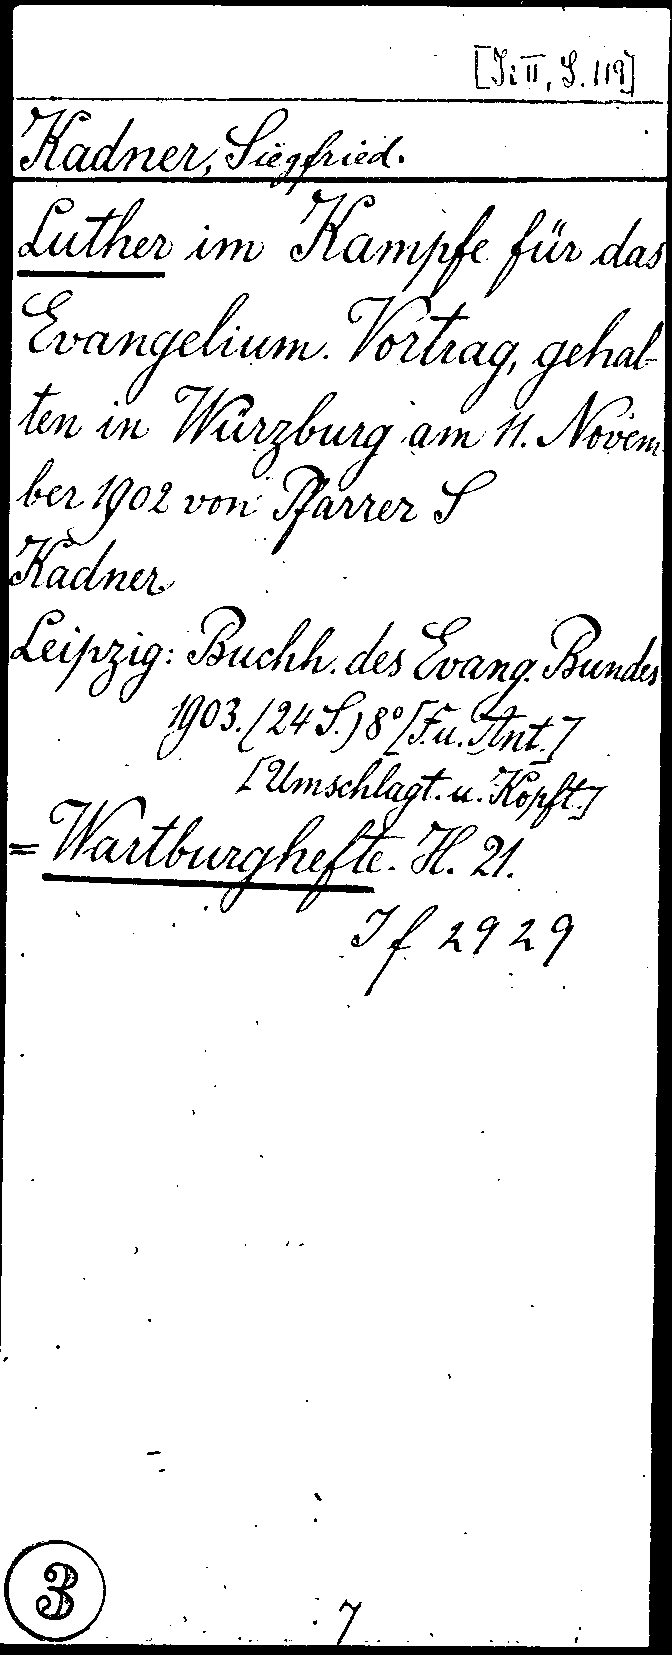 [J: II, S. 119]
Kadner, Siegfried.
Luther im Kampfe für das
Evangelium. Vortrag, gehal-
ten in Würzburg am 11. Novem
ber 1902 von Pfarrer S
Kadner
Leipzig: Buchh. des Evang. Bundes
1903. (24 S.) 8° [F. u. Ant.]
[Umschlagt. u. Kopft.]
= Wartburghefte. H. 21.
If 2929
3
7